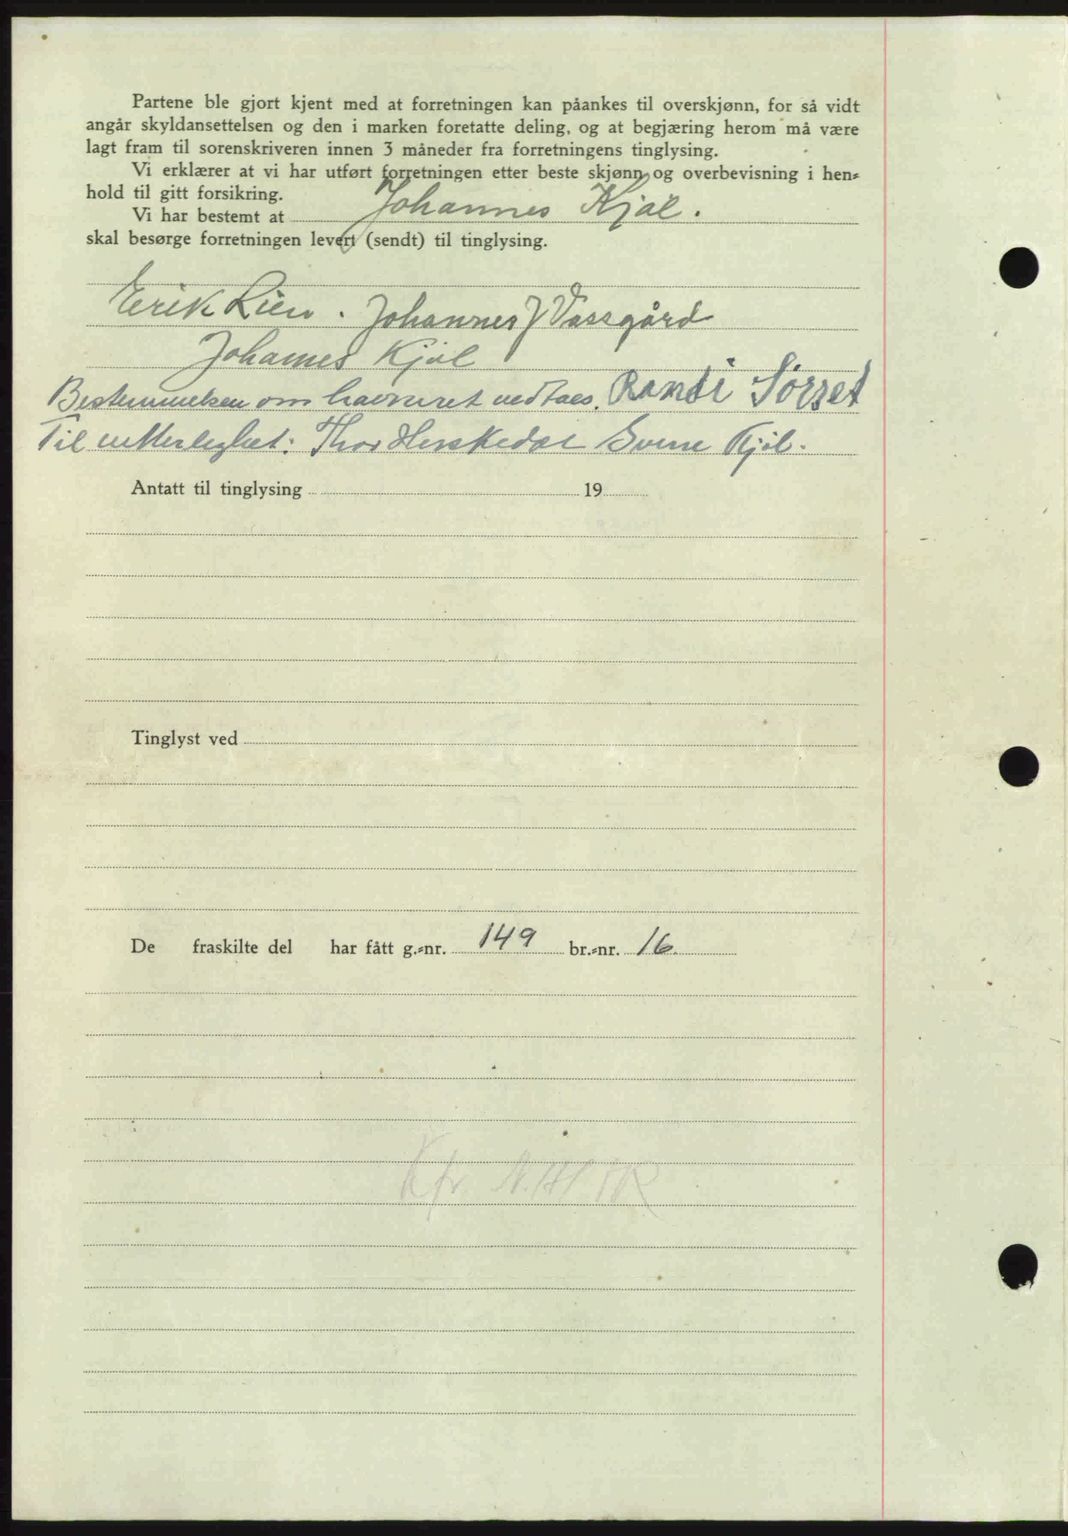 Partene ble gjort kjent med at forretningen kan påankes til overskjønn, for så vidt
angår skyldansettelsen og den i marken foretatte deling, og at begjæring herom må være
lagt fram til sorenskriveren innen 3 måneder fra forretningens tinglysing.
Vi erklærer at vi har utført forretningen etter beste skjønn og overbevisning i hen-
hold til gitt forsikring.
Vi har bestemt at Johannes Kjøl.
skal besørge forretningen levert (sendt) til tinglysing.
Erik Lien. Johannes J Vassgård
Johannes Kjøl
Bestemmelsen om havneret vedtaes. Randi Sørset
Til vitterlighet: Thor Herskedal Sverre Kjøl.
Antatt til tinglysing 19
Tinglyst ved
De fraskilte del har fått g.-nr. 149 br.-nr. 16.
Kfr.